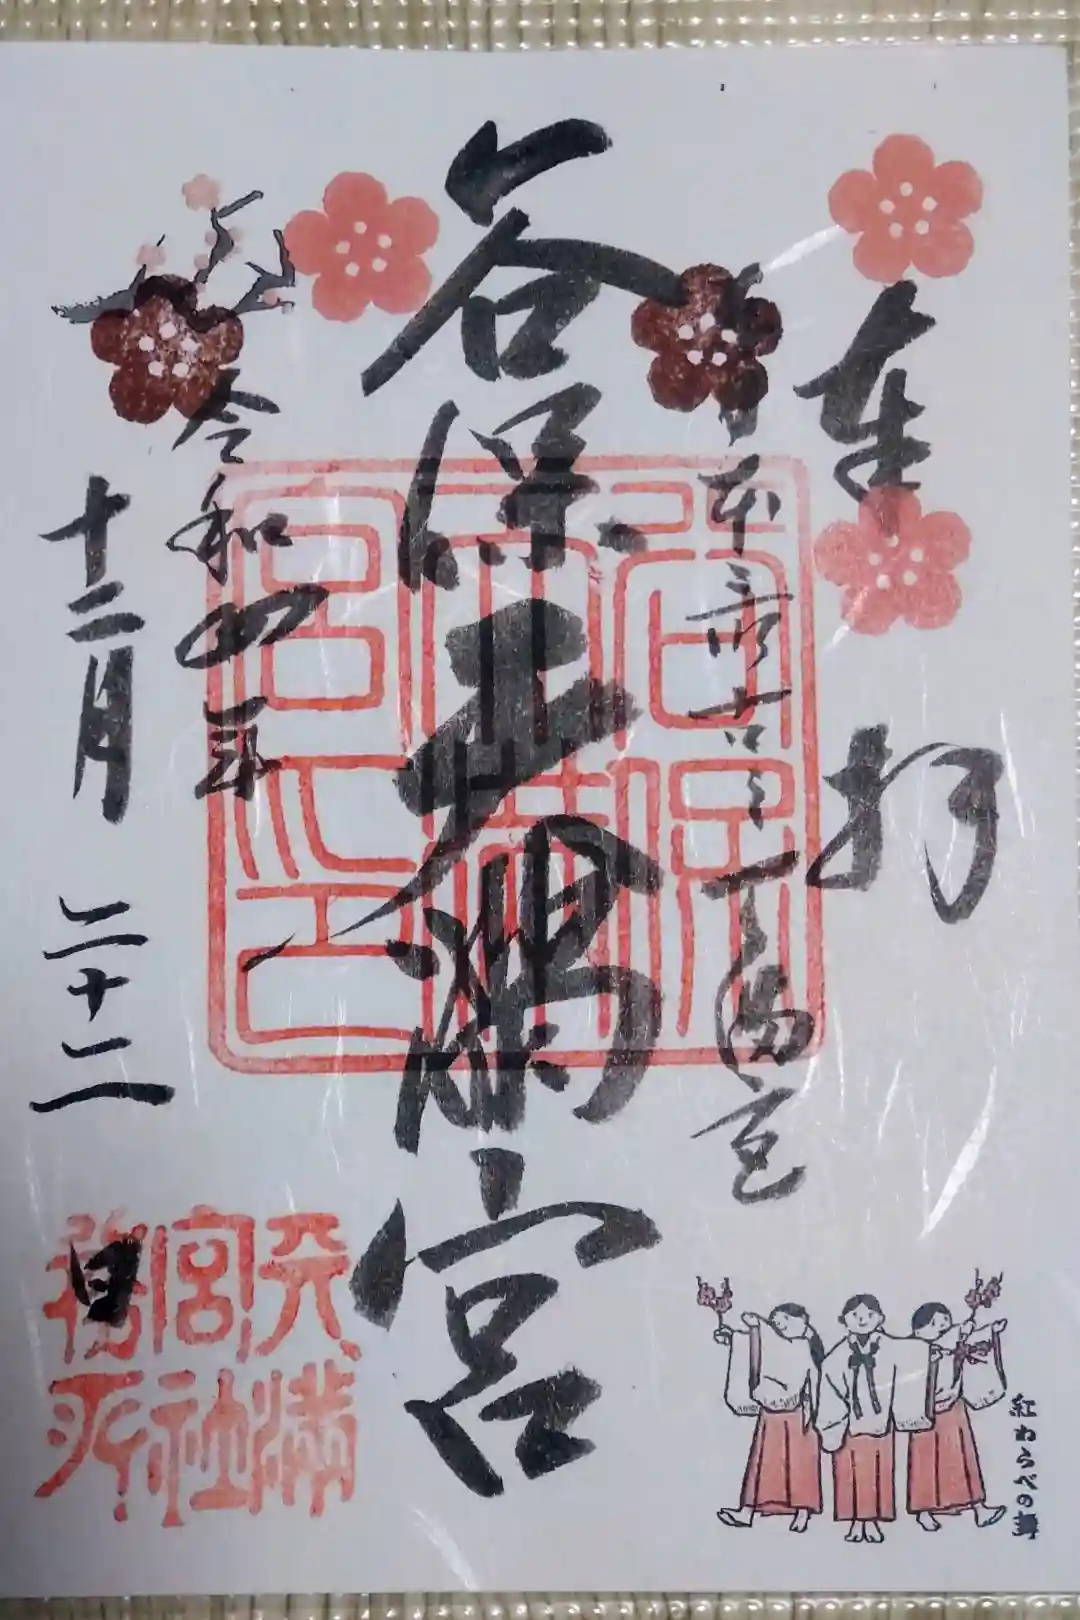 奉拝
東日本最古之天満宮
谷保天満宮
令和四年
十二月二十二日
谷保
天満
宮印
天満
宮社
務所
紅わらべの舞